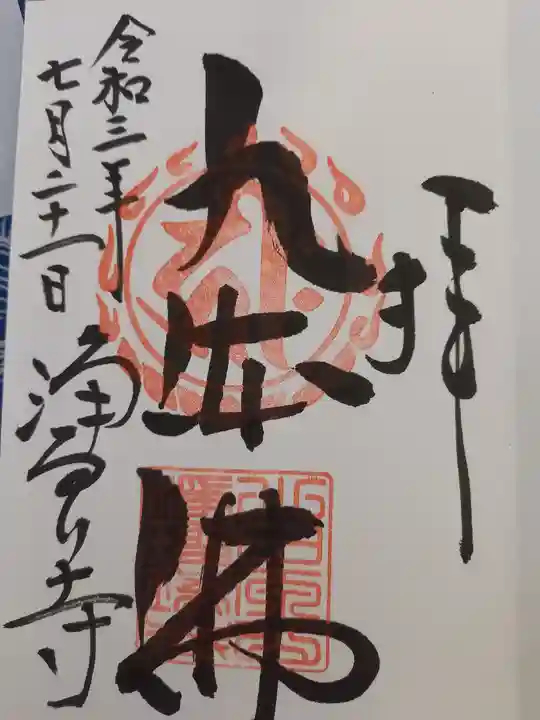 拝
九体佛
令和三年
七月二十一日
浄るり寺